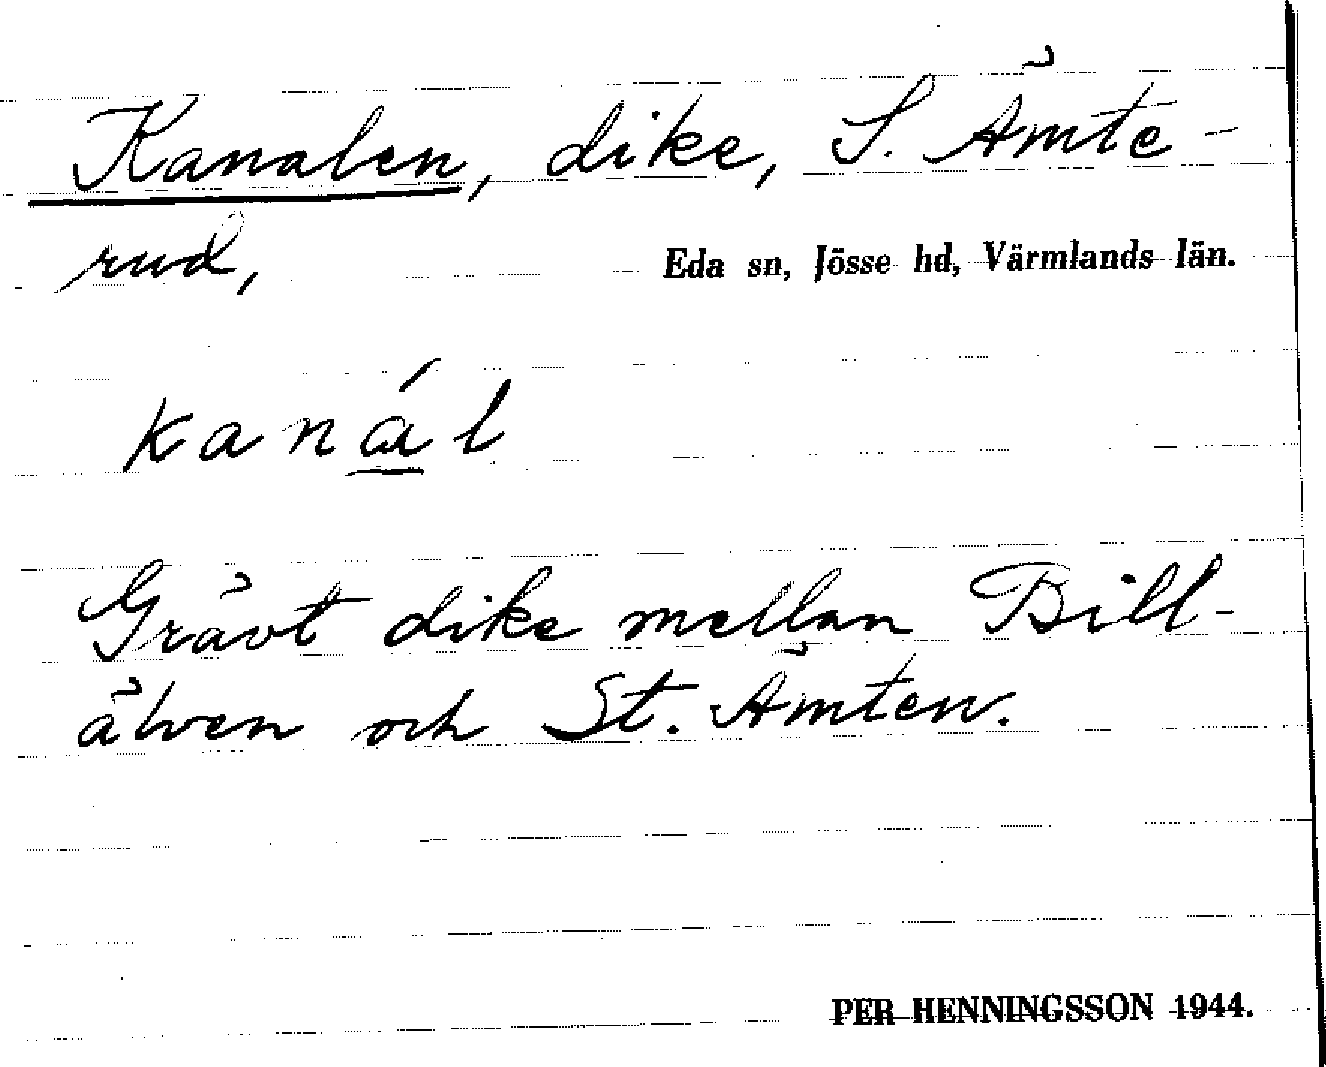 Kanalen, dike, S. Ämte-
rud,
Eda sn, Jösse hd, Värmlands län.
kanál
Grävt dike mellan Bill-
älven och St. Ämten.
PER HENNINGSSON 1944.